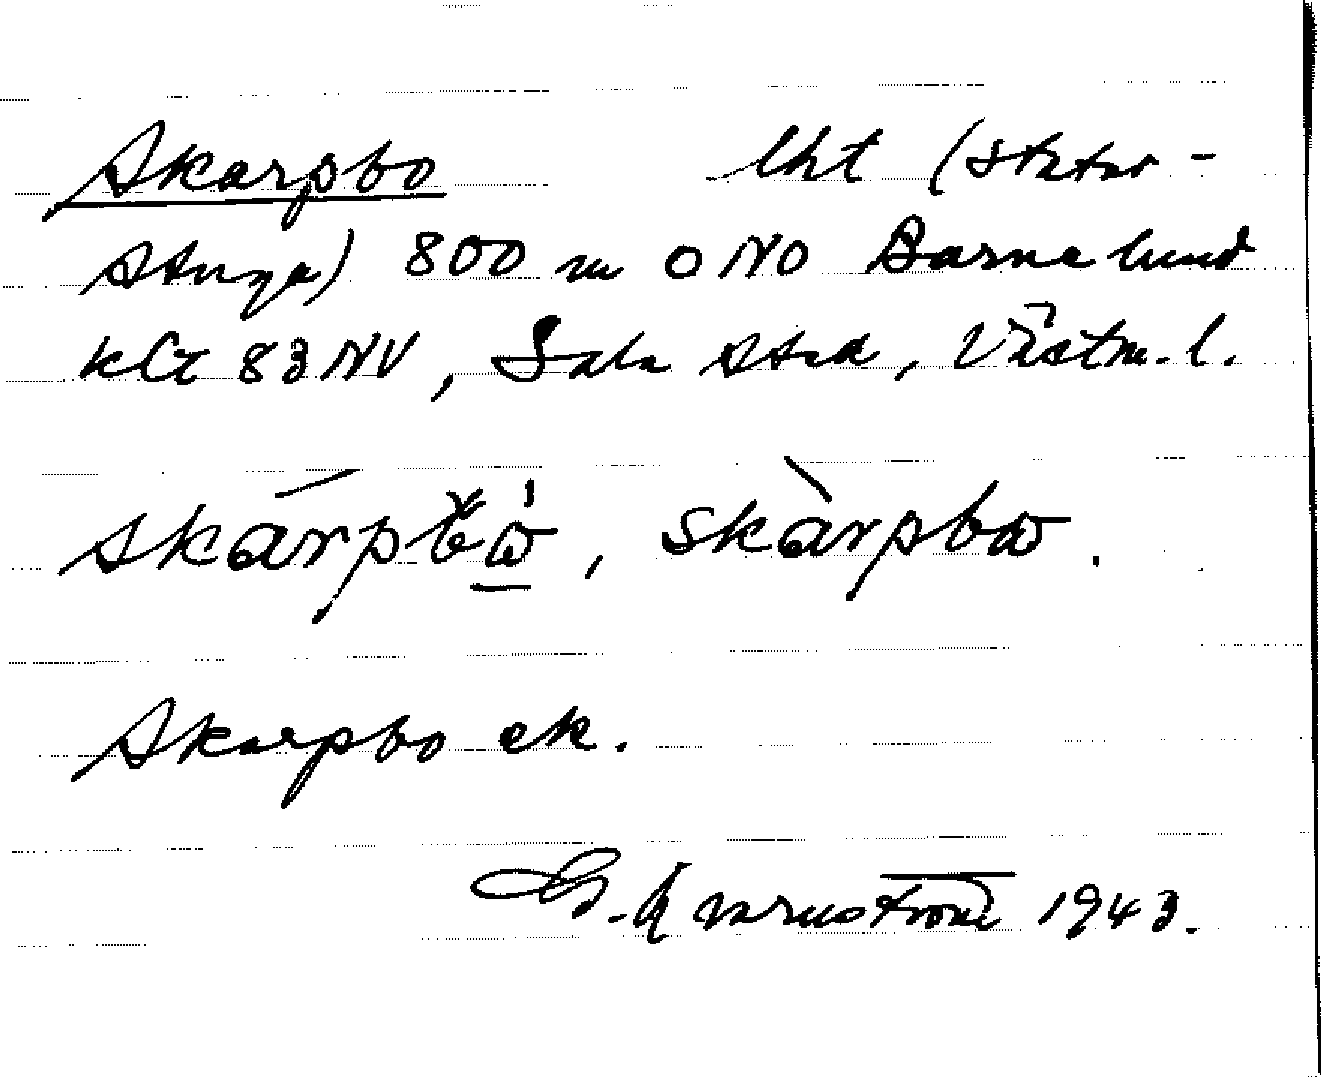 Skarpbo lht (statar-
stuga) 800 m ONO Barnalund
kbl 83 NV, Sala stad, Västm. l.
skárpbὼ, skàrpbω.
Skarpbo ek.
G. Kvarnström 1943.